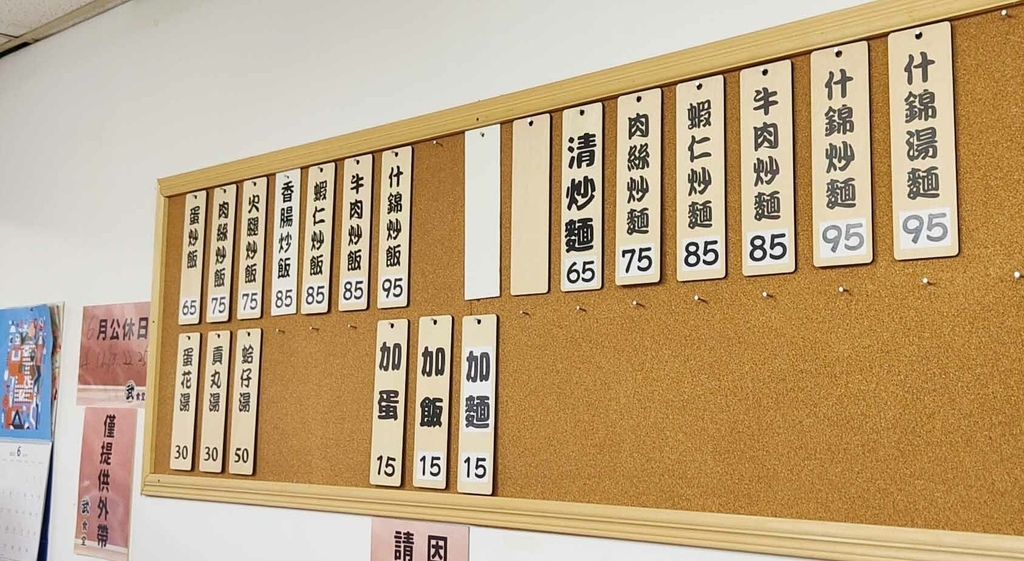 蛋炒飯 65
肉絲炒飯 75
火腿炒飯 75
香腸炒飯 85
蝦仁炒飯 85
牛肉炒飯 85
什錦炒飯 95
清炒麵 65
肉絲炒麵 75
蝦仁炒麵 85
牛肉炒麵 85
什錦炒麵 95
什錦湯麵 95
蛋花湯 30
貢丸湯 30
蛤仔湯 50
加蛋 15
加飯 15
加麵 15
6月公休日
武食堂
僅提供外帶
武食堂
請因
6